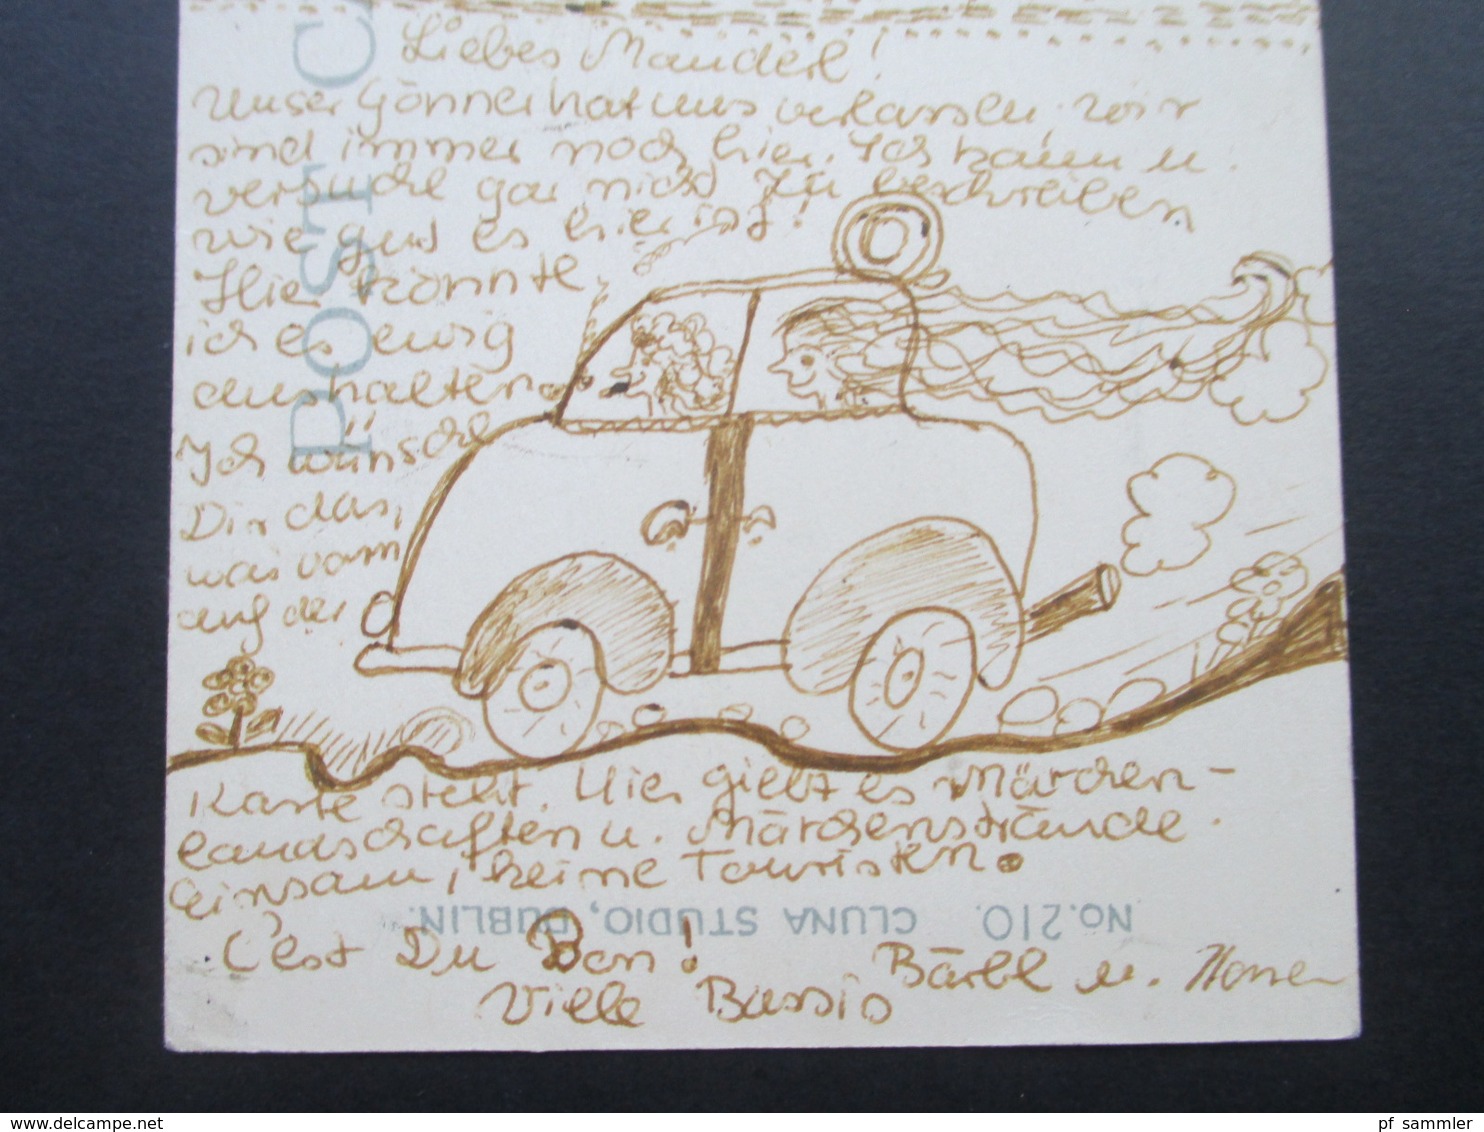 Liebes Mauderl!
unser Gönner hat uns verlassen, wir
sind immer noch hier. Ich kann u.
versuche gar nicht zu beschreiben
wie gut es hier ist!
Hier könnte
ich es ewig
aushalten.
Ich wünsche
Dir das,
was vorn
auf der
Karte steht. Hier giebt es Märchen-
landschaften u. Märchenstrände.
einsam, keine Touristen.
C'est Du Bon!
Bärbl u.
Viele Bussis
POST CA
No.210. CLUNA STUDIO, DUBLIN.
pf sammler